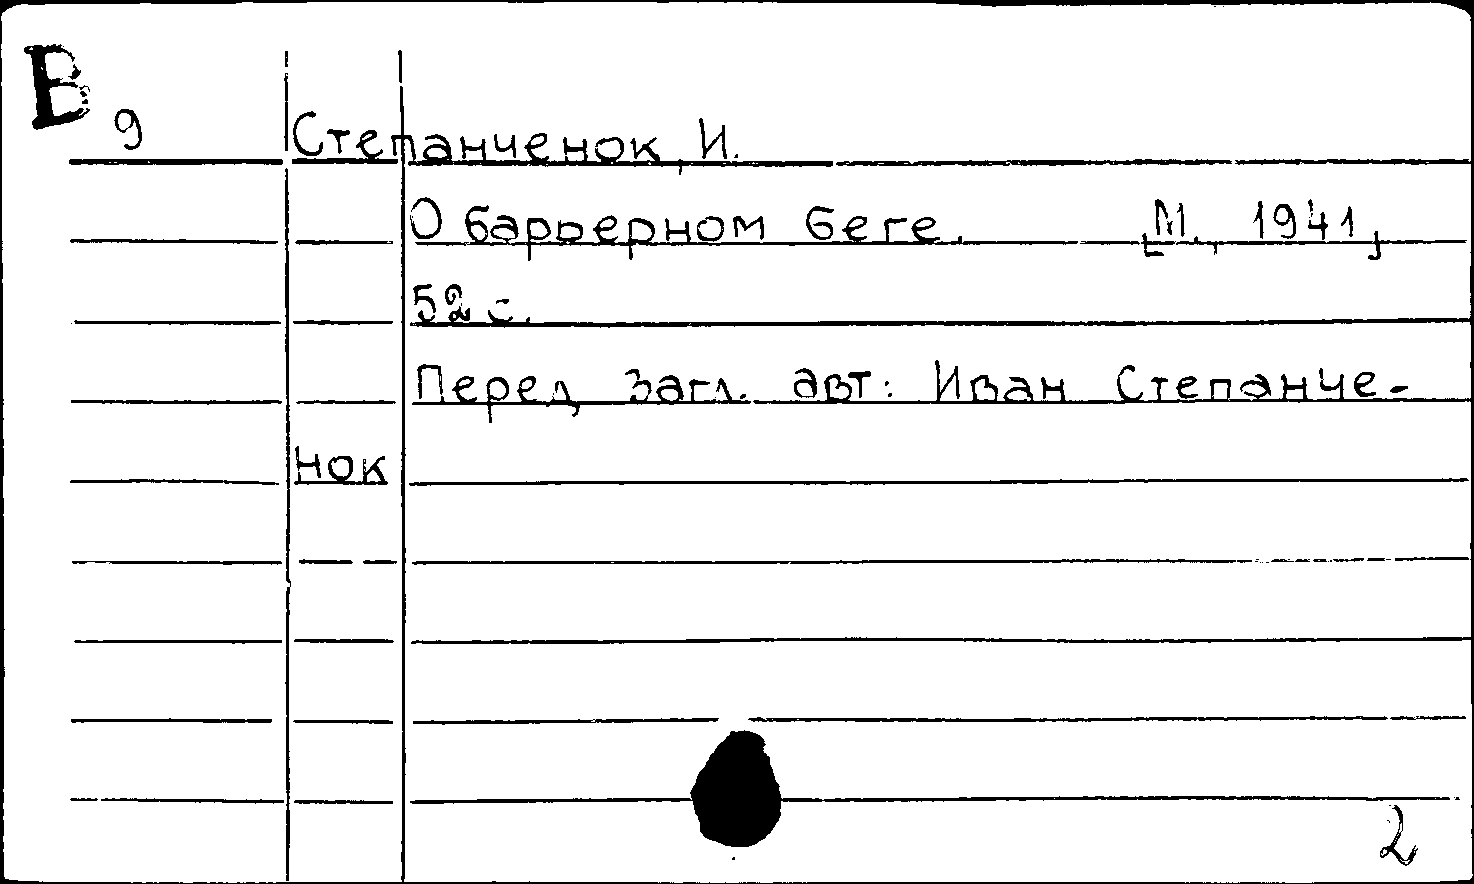 В 9
Степанченок, И.
О барьерном беге. [М., 1941]
52 с.
Перед загл. авт: Иван Степанче-
нок
2